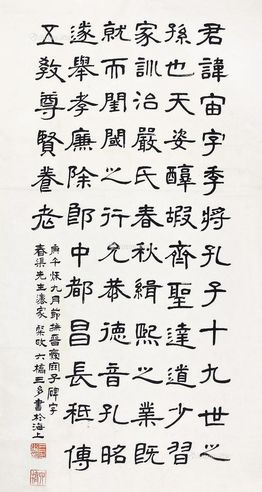 君諱宙字季將孔子十九世之
孫也天姿醇嘏齊聖達道少習
家訓治嚴氏春秋緝熙之業既
就而閨閾之行允恭德音孔昭
遂舉孝廉除郎中都昌長祗傳
五教尊賢養老
庚午秋九月節撫碑字
先生法家 六橋三多書於海上